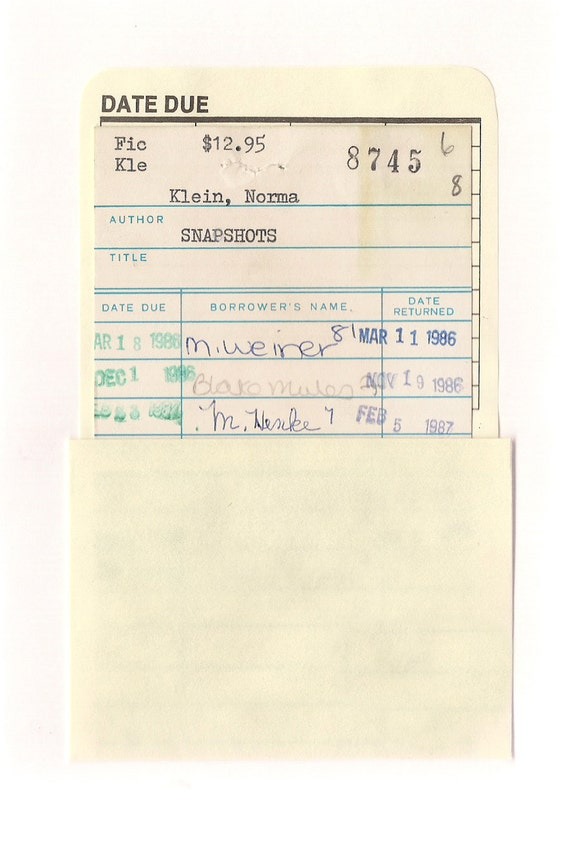 DATE DUE
Fic $12.95 8745 6
Kle 8
Klein, Norma
AUTHOR
SNAPSHOTS
TITLE
DATE DUE BORROWER'S NAME DATE RETURNED
AR 18 1986 M. Weiner 81 MAR 11 1986
DEC 1 1986 NOV 19 1986
M. 7 FEB 5 1987